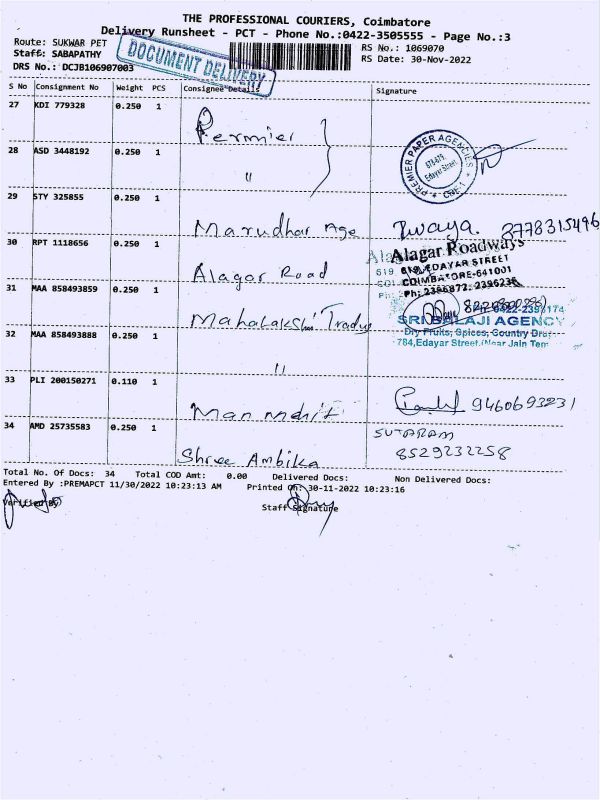 THE PROFESSIONAL COURIERS, Coimbatore
Delivery Runsheet - PCT - Phone No.:0422-3505555 - Page No.:3
Route: SUKWAR PET
RS No.: 1069070
Staff: SABAPATHY
RS Date: 30-Nov-2022
DRS No.: DCJB106907003
DOCUMENT DELIVERY
S No Consignment No Weight PCS Consignee Details Signature
27 KDI 779328 0.250 1 Permier
PREMIER PAPER AGENCIES
Edayar Street,
28 ASD 3448192 0.250 1 "
29 STY 325855 0.250 1 Marudhar Age
30 RPT 1118656 0.250 1 Alagar Road
Alagar Roadways
619, EDAYAR STREET
COIMBATORE-641001
Ph: 2396872, 2396236
31 MAA 858493859 0.250 1 Mahalakshi Tradug
SRI BALAJI AGENCY
Dry Fruits, Spices, Country Drug
784, Edayar Street, (Near Jain Tem
32 MAA 858493888 0.250 1 "
33 PLI 200150271 0.110 1
9460693231
34 AMD 25735583 0.250 1 Shree Ambika
SUTARAM
8529232258
Total No. Of Docs: 34 Total COD Amt: 0.00 Delivered Docs: Non Delivered Docs:
Entered By :PREMAPCT 11/30/2022 10:23:13 AM Printed On: 30-11-2022 10:23:16
Verified By
Staff Signature